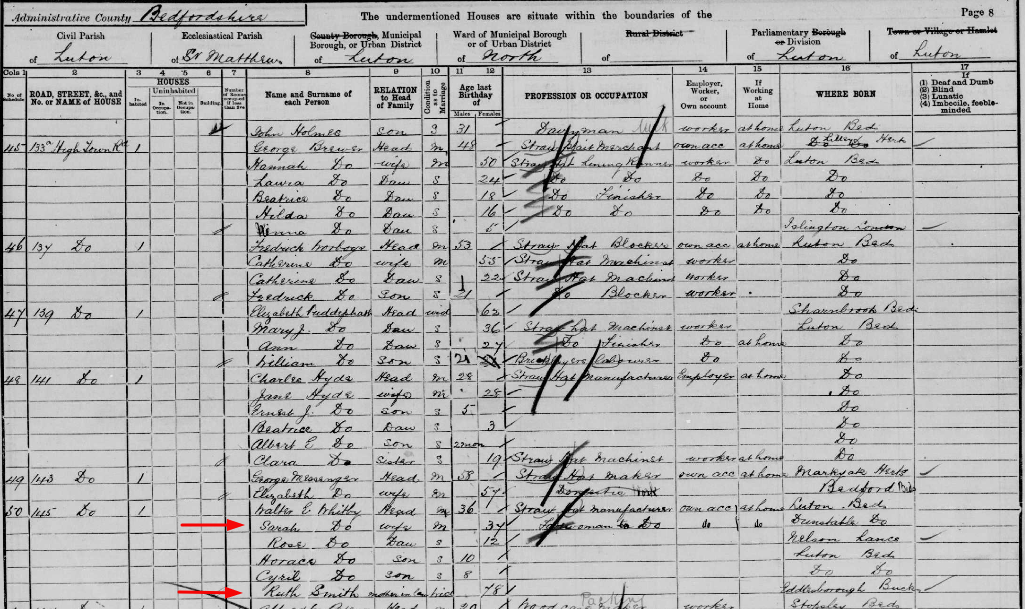 Administrative County Bedfordshire The undermentioned Houses are situate within the boundaries of the Page 8
Civil Parish Ecclesiastical Parish County Borough, Municipal Borough, or Urban District Ward of Municipal Borough or of Urban District Rural District Parliamentary Borough or Division Town or Village or Hamlet
of Luton of St Matthews of Luton of North of of Luton of Luton
Cols 1 2 3 4 5 6 7 8 9 10 11 12 13 14 15 16 17
No. of Schedule ROAD, STREET, &c., and No. or NAME of HOUSE HOUSES Inhabited Uninhabited In Occupation. Not in Occupation. Building. Name and Surname of each Person RELATION to Head of Family Condition as to Marriage Age last Birthday of Males Females PROFESSION OR OCCUPATION Employer, Worker, or Own account If Working at Home WHERE BORN If (1) Deaf and Dumb (2) Blind (3) Lunatic (4) Imbecile, feeble-minded
John Holmes Son S 31 Dairyman Milk worker at home Luton Bed
45 133a High Town Rd 1 George Brewer Head M 48 Straw Hat Merchant own acc at home Herts
Hannah Do wife M 50 Straw Hat worker Do Luton Bed
Laura Do Dau S 24 Do Do Do Do Do
Beatrice Do Dau S 18 Do Finisher Do Do Do
Hilda Do Dau S 16 Do Do Do Do Do
Do Dau S 5 Islington London
46 137 Do 1 Fredrick Worboys Head M 53 Straw Hat Blocker own acc at home Luton Bed
Catherine Do wife M 55 Straw Hat Machinist worker Do
Catherine Do Dau S 22 Straw Hat Machinist worker Do
Fredrick Do Son S 21 Do Blocker worker Do
47 139 Do 1 Elizabeth Puddiphatt Head wid 62 Sharnbrook Bed
Mary J. Do Dau S 36 Straw Hat Machinist worker Luton Bed
Ann Do Dau S 27 Do Finisher Do at home Do
William Do Son S 21 Bricklayers labourer Do Do
48 141 Do 1 Charles Hyde Head M 28 Straw Hat Manufacturer Employer at home Do
Jane Hyde wife M 28 Do
Ernest J. Do Son S 5 Do
Beatrice Do Dau S 3 Do
Albert E Do Son S mon Do
Clara Do Sister S 19 Straw Hat Machinist worker at home Do
49 143 Do 1 George Messenger Head M 58 Straw Hat maker own acc at home Markyate Herts
Elizabeth Do wife M 57 Domestic Work Bedford Beds
50 145 Do 1 Walter E Whitby Head M 36 Straw Hat manufacturer own acc at home Luton Bed
Sarah Do wife M 37 to Do do do Dunstable Do
Rose Do Dau 12 Nelson Lancs
Horace Do Son 10 Luton Bed
Cyril Do Son 8 Do Do
Ruth Smith mother in law wid 78 Eddlesborough Bucks
Head worker Stopsley Bed